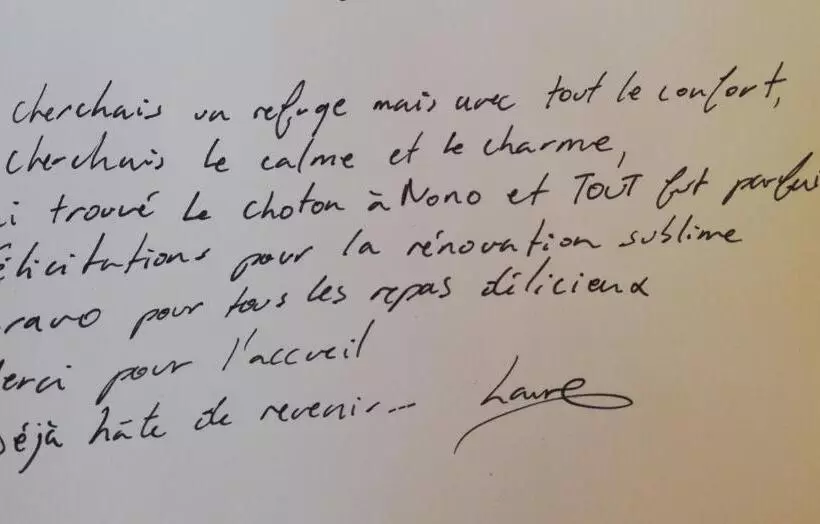 cherchais un refuge mais avec tout le confort,
cherchais le calme et le charme,
i trouvé le choton à Nono et TOUT fut parfai
élicitations pour la rénovation sublime
ravo pour tous les repas délicieux
erci pour l'accueil
éjà hâte de revenir...
Laure